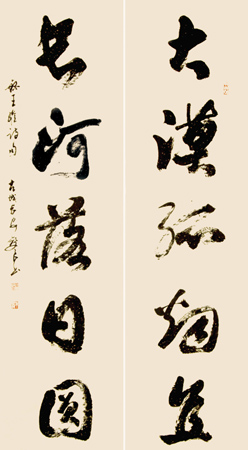 大漠孤烟直
长河落日圆
王维诗句